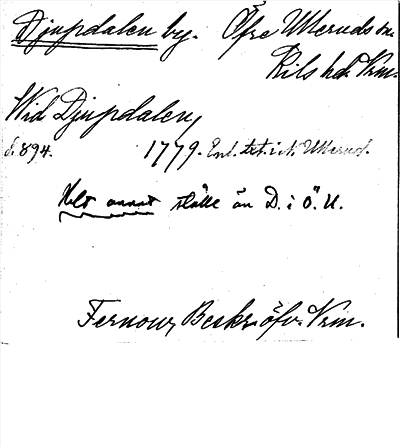 Djupdalen by. Öfre Ulleruds sn.
Kils hd. Vrm.
Wid Djupdalen,
s. 894. 1779. Enl. txt. i N. Ullerud.
Helt annat ställe än D. i Ö. U.
Fernow, Beskr. öfv. Vrm.